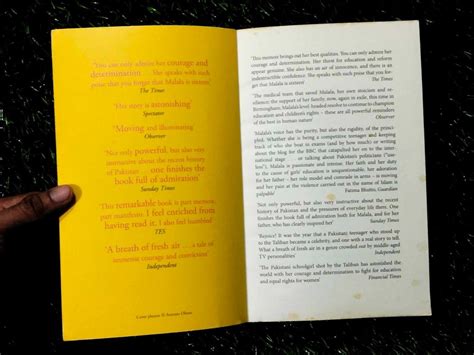 'You can only admire her courage and
determination . . . She speaks with such
poise that you forget that Malala is sixteen'
The Times
'Her story is astonishing'
Spectator
'Moving and illuminating'
Observer
'Not only powerful, but also very
instructive about the recent history
of Pakistan . . . one finishes the
book full of admiration'
Sunday Times
'This remarkable book is part memoir,
part manifesto. I feel enriched from
having read it, I also feel humbled'
TES
'A breath of fresh air . . . a tale of
immense courage and conviction'
Independent
'This memoir brings out her best qualities. You can only admire her
courage and determination. Her thirst for education and reform
appear genuine. She also has an air of innocence, and there is an
indestructible confidence. She speaks with such poise that you for-
get that Malala is sixteen'
The Times
'The medical team that saved Malala, her own stoicism and re-
silience, the support of her family, now, again in exile, this time in
Birmingham, Malala's level-headed resolve to continue to champion
education and children's rights – these are all powerful reminders
of the best in human nature'
Observer
'Malala's voice has the purity, but also the rigidity, of the princi-
pled. Whether she is being a competitive teenager and keeping
track of who she beat in exams (and by how much) or writing
about the blog for the BBC that catapulted her on to the inter-
national stage or talking about Pakistan's politicians ("use-
less"), Malala is passionate and intense. Her faith and her duty
to the cause of girls' education is unquestionable, her adoration
for her father – her role model and comrade in arms – is moving
and her pain at the violence carried out in the name of Islam is
palpable'
Fatima Bhutto, Guardian
'Not only powerful, but also very instructive about the recent
history of Pakistan and the pressures of everyday life there. One
finishes the book full of admiration both for Malala, and for her
father, who has clearly inspired her'
Sunday Times
'Rejoice! It was the year that a Pakistani teenager who stood up
to the Taliban became a celebrity, and one with a real story to tell.
What a breath of fresh air in a genre crowded out by middle-aged
TV personalities'
Independent
'The Pakistani schoolgirl shot by the Taliban has astonished the
world with her courage and determination to fight for education
and equal rights for women'
Financial Times
Cover photo © Antonio Olmos